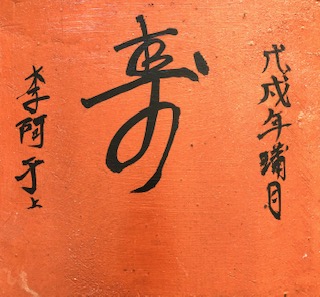 戊戌年月
寿
李阿上